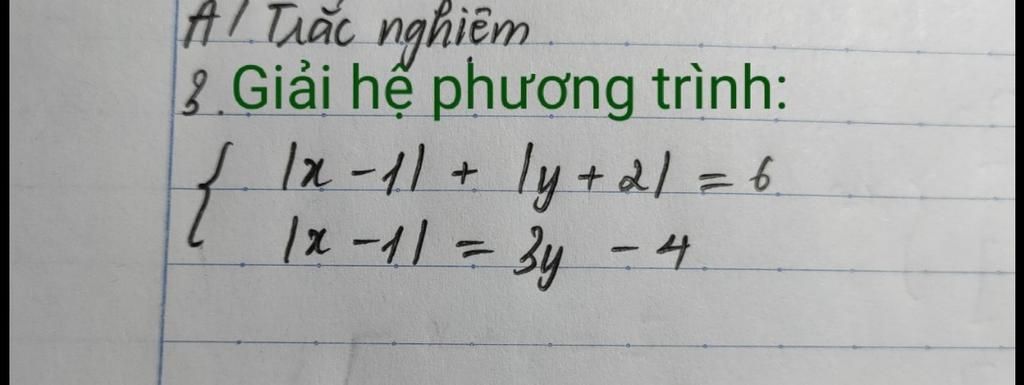 A/ Trắc nghiệm
3. Giải hệ phương trình:
{ |x - 1| + |y + 2| = 6
|x - 1| = 3y - 4